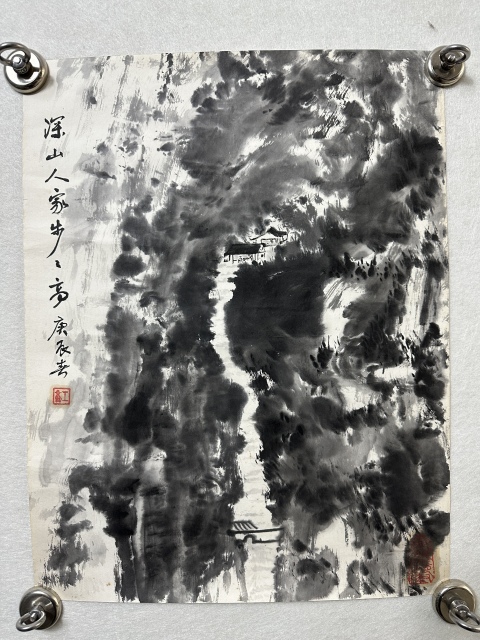 深山人家步々高
庚辰春